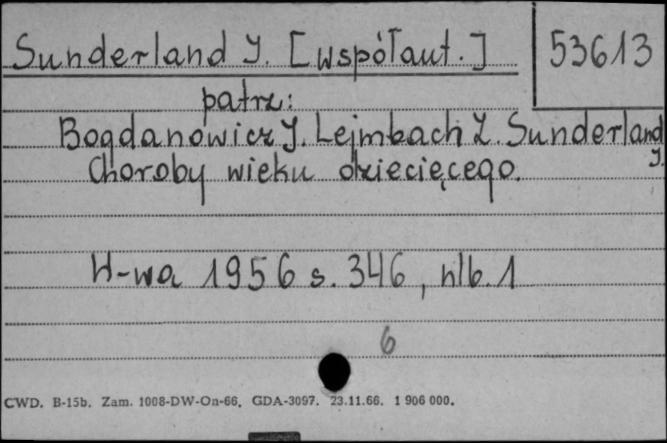 Sunderland J. [współaut.] 53613
patrz:
Bogdanowicz J. Lejmbach Z. Sunderland J.
Choroby wieku dziecięcego.
W-wa 1956 s. 346, nlb. 1
6
CWD. B-15b. Zam. 1008-DW-On-66. GDA-3097. 23.11.66. 1 906 000.